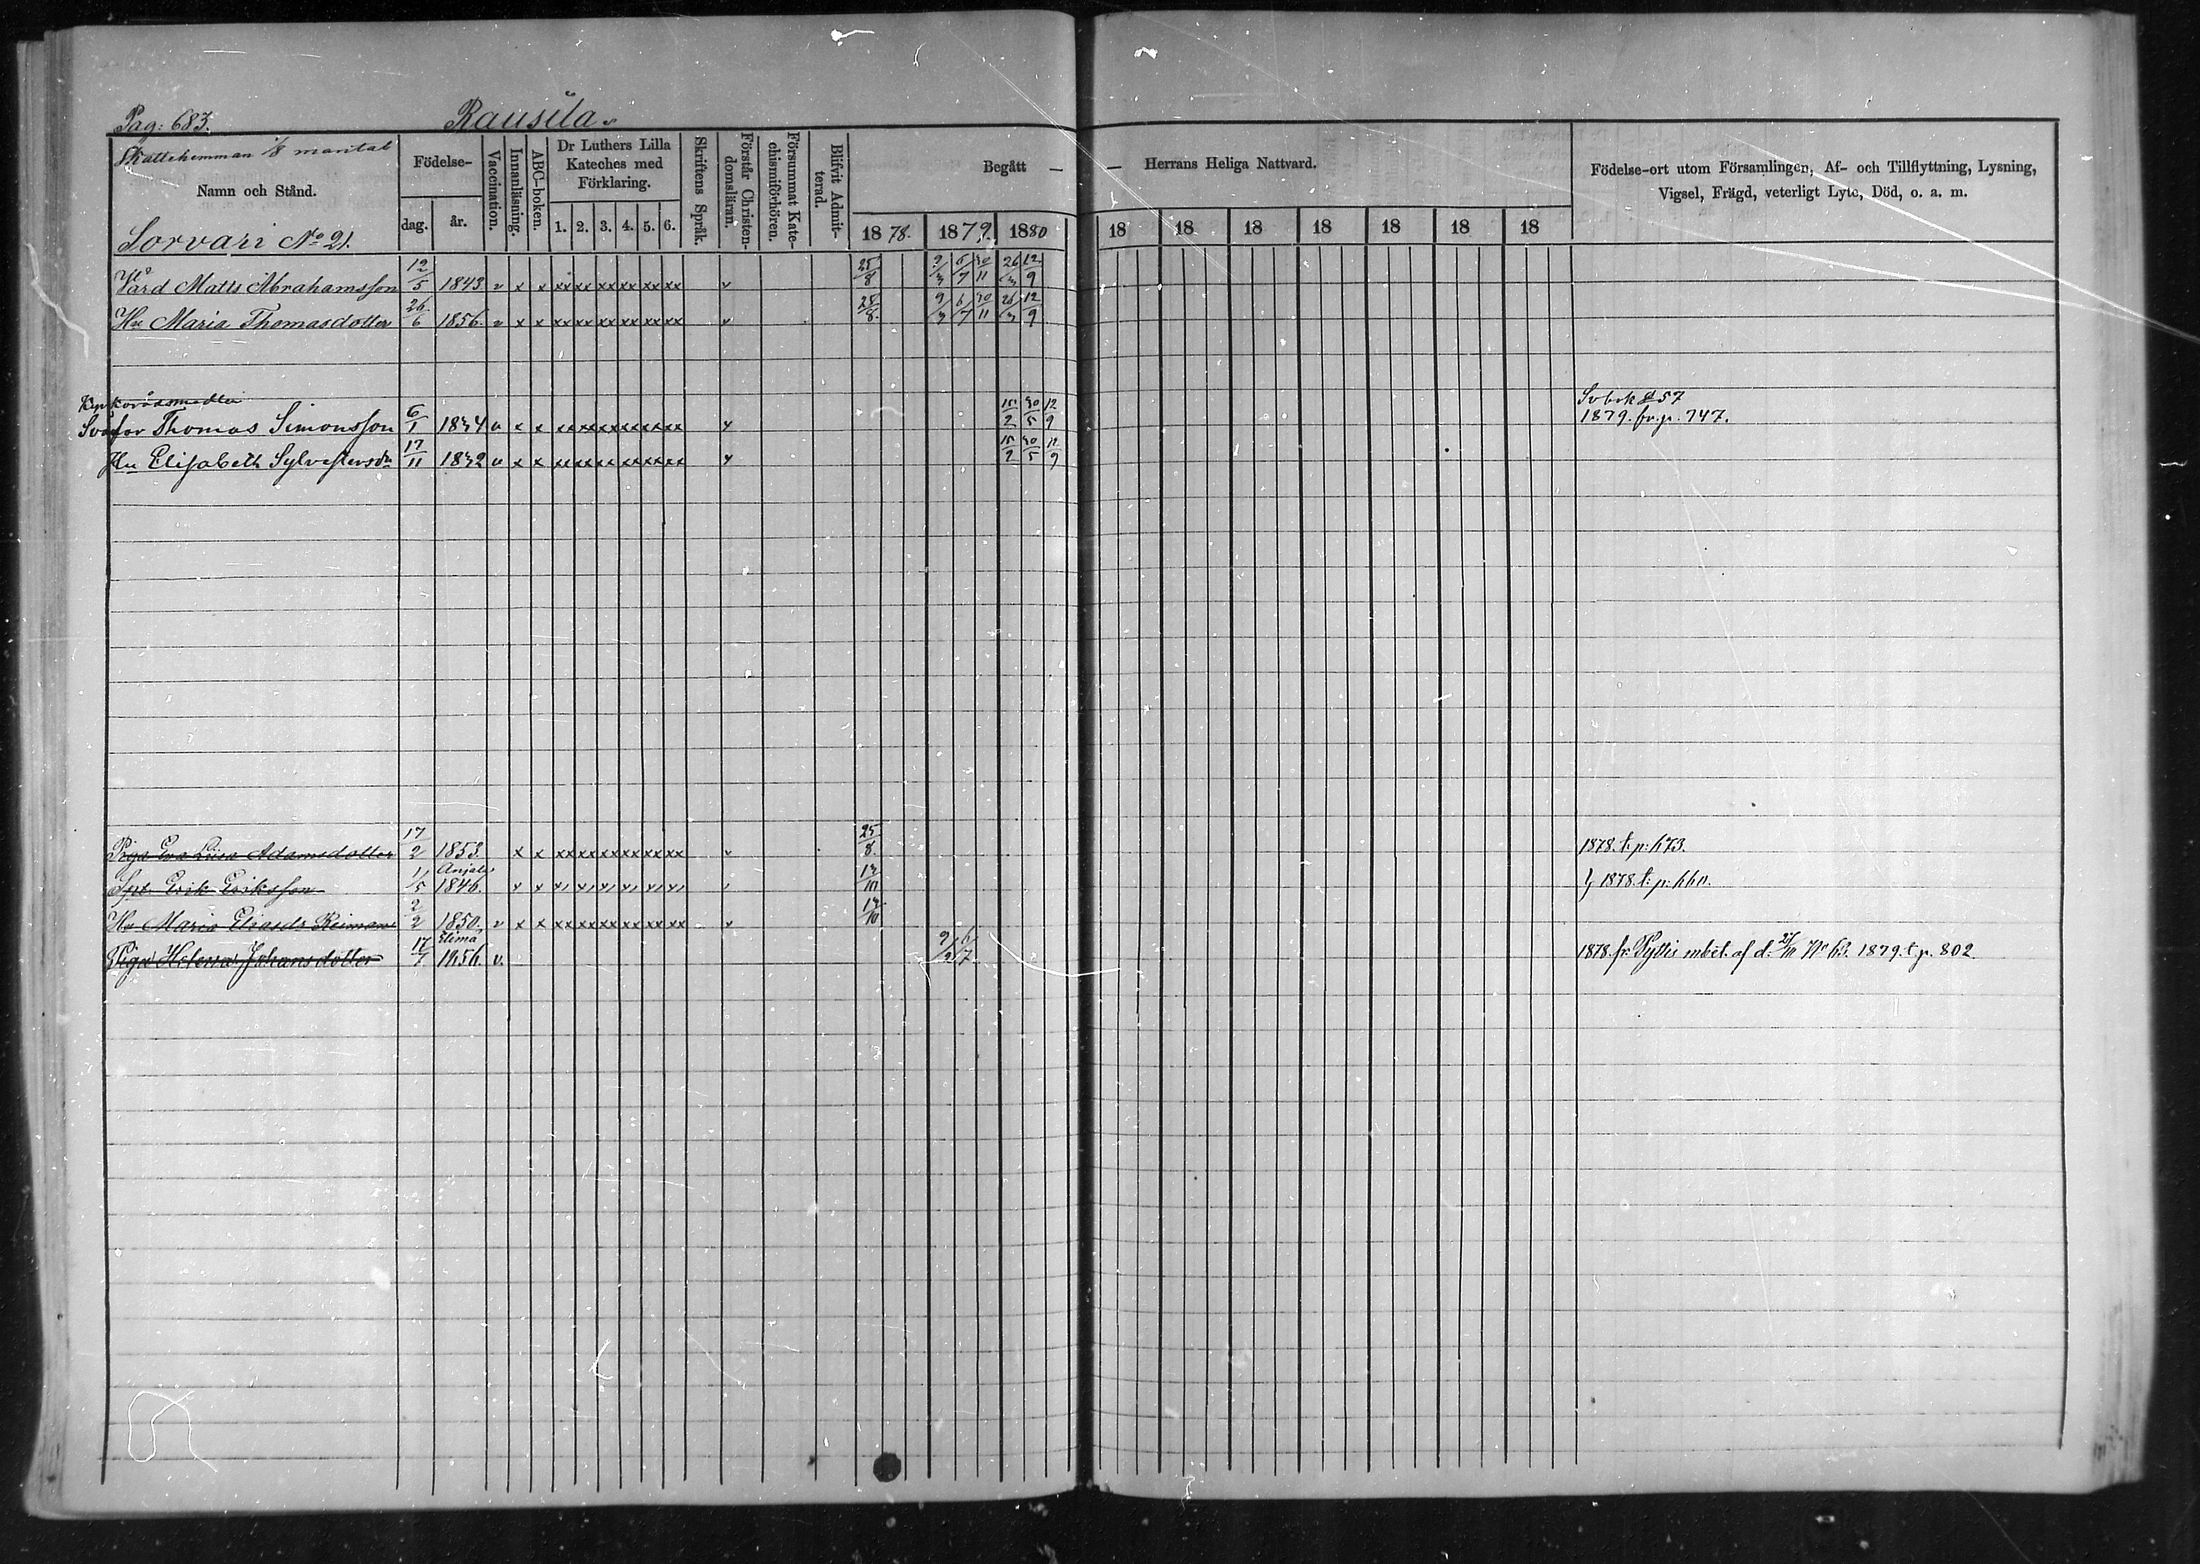 Pag: 683. Rausila.
Skattehemman 1/8 mantal
Namn och Stånd.
Sorvari No 21.
Födelse-
dag. år.
Vaccination.
Innanläsning.
ABC-boken.
Dr Luthers Lilla
Kateches med
Förklaring.
1. 2. 3. 4. 5. 6.
Skriftens Språk.
Förstår Christen-
domsläran.
Försummat Kate-
chismiförhören.
Blifvit Admit-
terad.
Begått — — Herrans Heliga Nattvard.
1878. 1879. 1880 18 18 18 18 18 18 18
Födelse-ort utom Församlingen, Af- och Tillflyttning, Lysning,
Vigsel, Frägd, veterligt Lyte, Död, o. a. m.
Vård Matts Abrahamsson 12/5 1843 v x x xx xx xx xx xx xx v 25/8 9/3 6/7 30/11 26/3 12/9
Hu Maria Thomasdotter 26/6 1856. v x x xx xx xx xx xx xx v 25/8. 9/3 6/7 30/11 26/3 12/9
Thomas Simonsson 6/1 1834 v x x xx xx xx xx xx xx 15/2 30/5 12/9 1879. fr. p. 747.
Hu Elisabeth Sylvestersdr 17/11 1832 v x x xx xx xx xx xx xx 15/2 30/5 12/9
Piga Eva Lisa Adamsdotter 17/2 1853. x x xx xx xx xx xx xx v 25/8. 1878. t. p: 673.
Anjala
Erik Eriksson 11/5 1846. 1878. t: p: 660.
Hu Maria Eliasdr Reiman 2/2 1850. v x x xx xx xx xx xx xx v
Elimä
Piga Helena Johansdotter 17/7 1856. v. 9/3 6/7 1878. fr. Pyttis mbet. af d. No 63. 1879. t. p. 802.